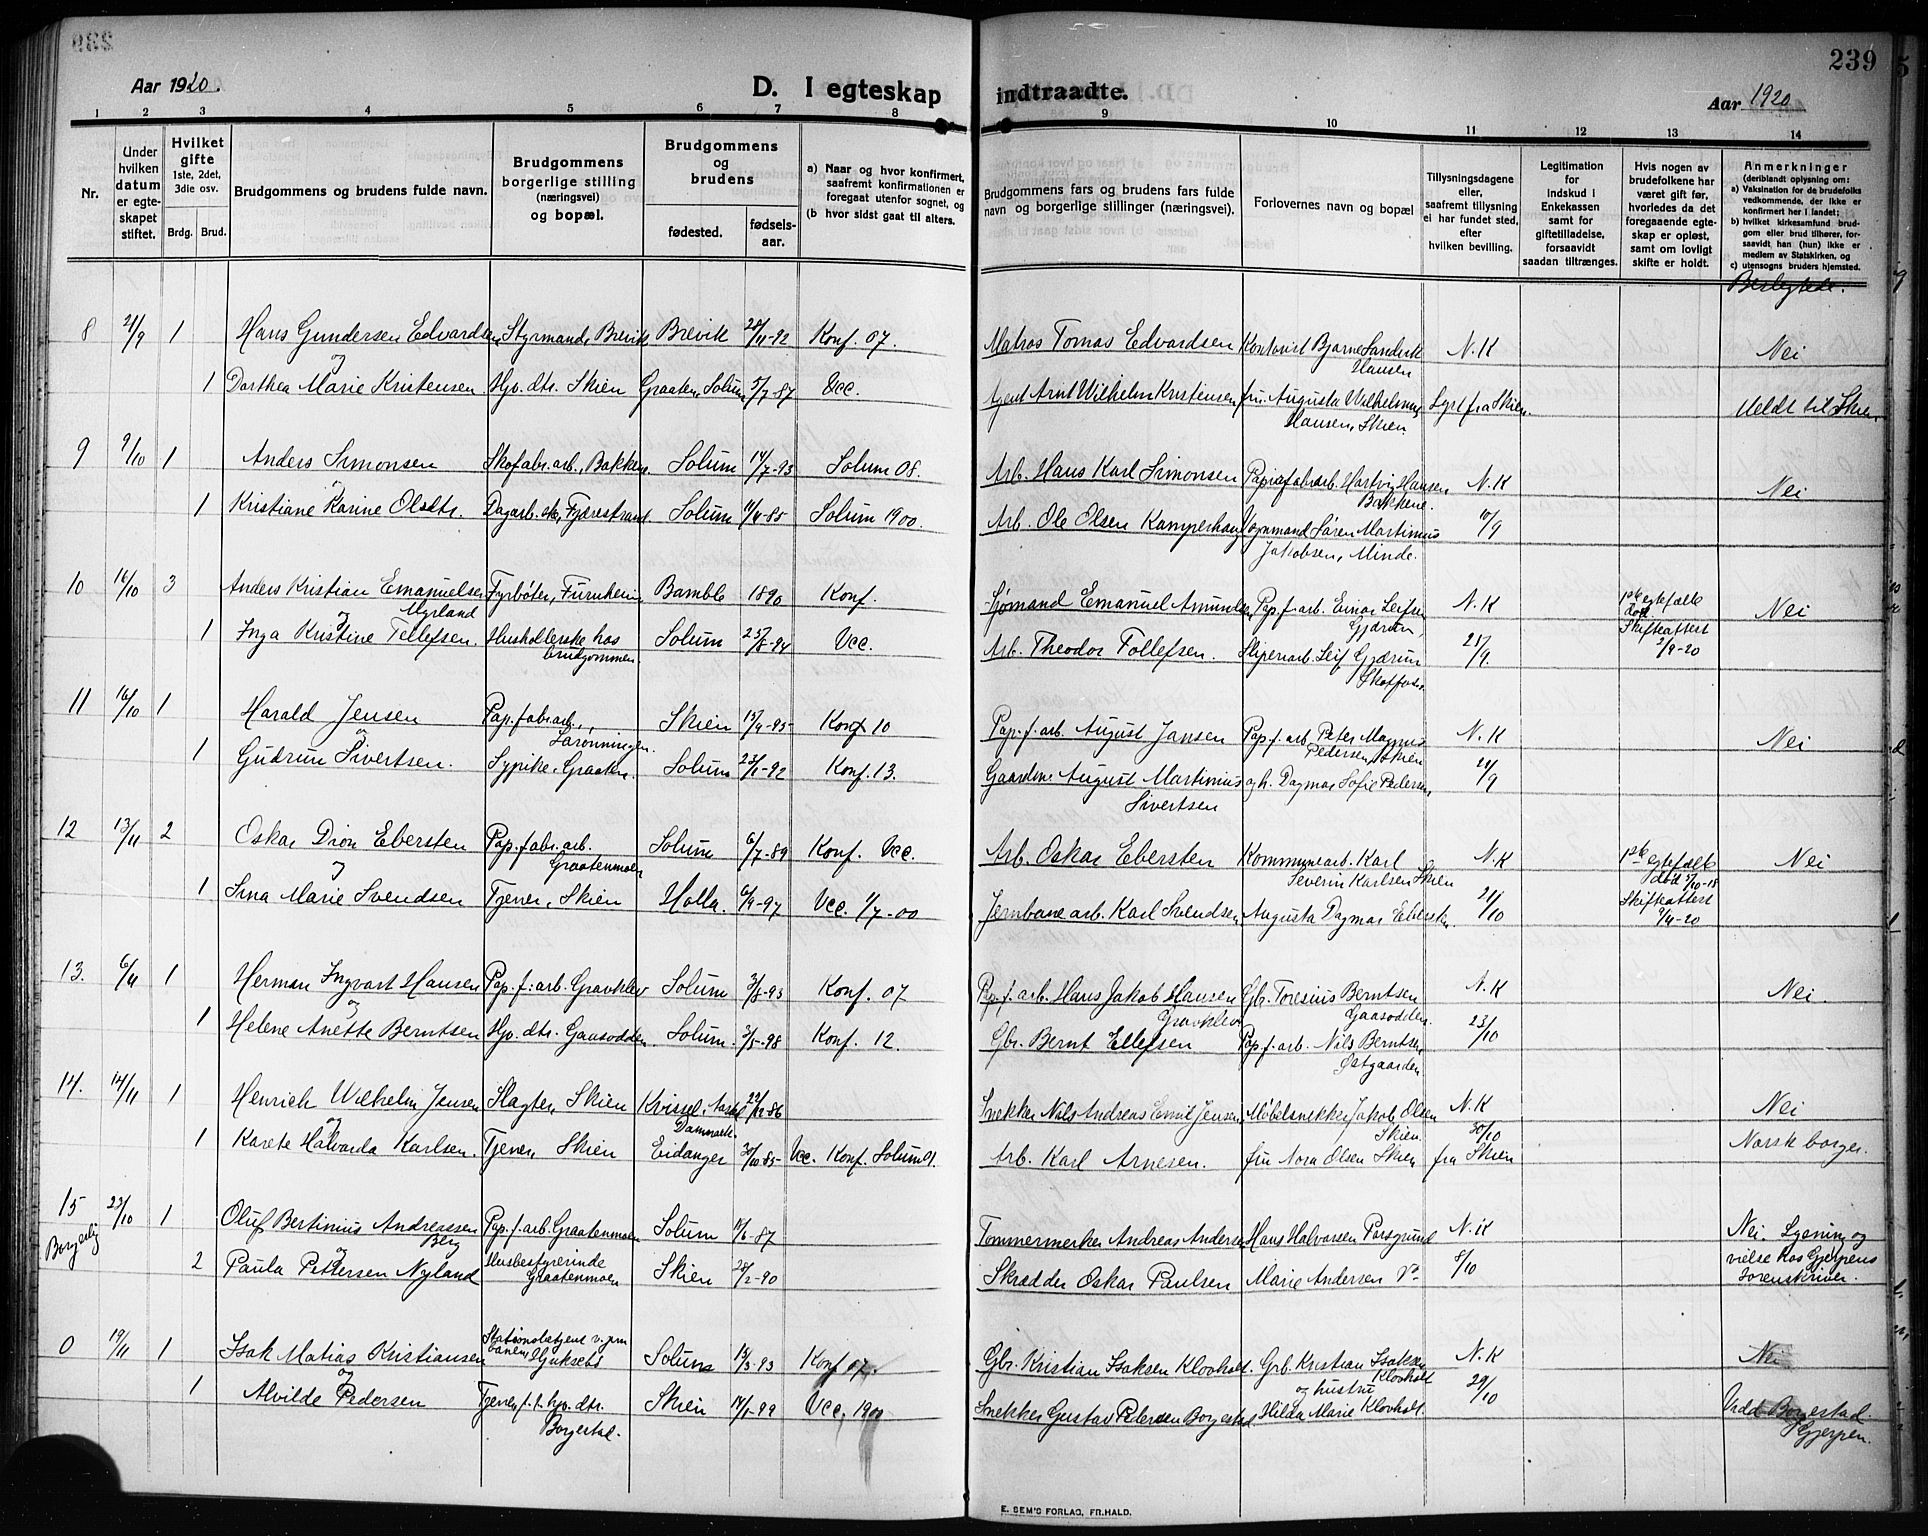 239
Aar 1920.
D. I egteskap indtraadte.
Aar 1920
1 2 3 4 5 6 7 8 9 10 11 12 13 14
Nr.
Under hvilken datum er egteskapet stiftet.
Hvilket gifte 1ste, 2det, 3die osv.
Brdg. Brud.
Brudgommens og brudens fulde navn.
Brudgommens borgerlige stilling (næringsvei) og bopæl.
Brudgommens og brudens
fødested. fødselsaar.
a) Naar og hvor konfirmert, saafremt konfirmationen er foregaat utenfor sognet, og
(b hvor sidst gaat til alters.
Brudgommens fars og brudens fars fulde navn og borgerlige stillinger (næringsvei).
Forlovernes navn og bopæl
Tillysningsdagene eller, saafremt tillysning ei har fundet sted, efter hvilken bevilling.
Legitimation for indskud i Enkekassen samt for giftetilladelse, forsaavidt saadan tiltrænges.
Hvis nogen av brudefolkene har været gift før, hvorledes da det foregaaende egteskap er opløst, samt om lovligt skifte er holdt.
Anmerkninger (deriblandt oplysning om:
a) Vaksination for de brudefolks vedkommende, der ikke er konfirmert her i landet;
b) hvilket kirkesamfund brudgom eller brud tilhører, forsaavidt han (hun) ikke er medlem av Statskirken, og
c) utensogns bruders hjemsted.
Beslegtede.
8 21/9 1 Hans Gundersen Edvardsen Styrmand, Brevik Brevik 28/11-92 Konf. 07. Matros Tomas Edvardsen Kontorist Bjarne Sanderk Hansen N.K Nei
og
1 Dorthea Marie Kristensen Hjv. dtr. Skien Graaten, Solum 5/7-87 Vcc. Agent Arnt Wilhelm Kristensen fru Augusta Vilhelmine Hansen, Skien. Lyst fra Skien. Meldt til Skien
9 9/10 1 Anders Simonsen Skofabr.arb., Bakken Solum 14/7-93 Solum 08. Arb. Hans Karl Simonsen Papirfabr.arb. Hartvig Hansen Bakkene. N.K Nei
og
1 Kristiane Karine Olsdtr. Dagarb.ske, Fjærestrand Solum 11/4-85 Solum 1900. Arb. Ole Olsen Kamperhaug Vognmand Søren Martinius Jakobsen, Minde. 10/9
10 16/10 3 Anders Kristian Emanuelsen Myrland Fyrbøter, Furuheim Bamble 1890 Konf. Sjømand Emanuel Amundsen Pap.f.arb. Einar Leifsen Gjærum, N.K 1ste egtefælle død Skifteattest 2/9-20 Nei
og
1 Inga Kristine Tellefsen. Husholderske hos brudgommen. Solum 25/8-94 Vcc. Arb. Theodor Tollefsen. Sliperiarb. Leif Gjærum Skotfoss. 21/9.
11 16/10 1 Harald Jensen Pap.fabr.arb., Sarønningen. Skien 15/9-95 Konf 10 Pap.f.arb. August Jansen Pap.f.arb. Peter Magnus Pedersen, Skien N.K Nei
og
1 Gudrun Sivertsen. Sypike, Graaten. Solum 23/1-92 Konf. 13. Gaardbr. August Martinius Sivertsen og h. Dagmar Sofie Pedersen 21/9
12 13/11 2 Oskar Dion Ebersten Pap.fabr.arb. Graatenmoen Solum 6/7-89 Konf. Vcc. Arb. Oskar Ebersten Kommunearb. Karl Severin Karlsen Skien N.K 1ste egtefælle død 5/10-18 Skifteattest 9/4-20 Nei
og
1 Sina Marie Svendsen Tjener, Skien Holla. 6/9-97 Vcc. 1/7-00 Jernbanearb. Karl Svendsen Augusta Dagmar Ebersten. 21/10
13. 6/11 1 Herman Ingvart Hansen Pap.f.arb. Gravklev Solum 3/8-93 Konf. 07 Pap.f.arb. Hans Jakob Hansen Gravklev Gbr. Toresius Berntsen Gaasodden. N.K Nei.
og
1 Helene Anette Berntsen Hjv. dtr. Gaasodden Solum. 3/5-98 Konf. 12. Gbr. Bernt Ellefsen Pap.f.arb. Nils Berntsen Østgaarden 23/10
14. 14/11 1 Henrich Wilhelm Jensen Slagter, Skien Kvissel, Aasted Danmark. 22/12-86 Snekker Nils Andreas Emil Jensen, Møbelsnekker Jakob Olsen Skien. N.K 30/10 Nei
og
1 Karete Halvarda Karlsen. Tjener, Skien Eidanger 30/10-85 Vcc. Konf. Solum 01. Arb. Karl Arnesen. fru Nora Olsen Skien fra Skien Norsk borger.
15 Borgerlig 23/10 1 Oluf Bertinius Andreassen Berg Pap.f.arb. Graatenmoen Solum 11/6-87 Tømmermerker Andreas Andersen Hans Halvorsen Porsgrund N.K Nei. Lysning og
og
2 Paula Pettersen Nyland Husbestyrerinde Graatenmoen Skien 28/2-90 Skrædder Oskar Paulsen Marie Andersen Do 8/10 vielse hos Gjerpens Sorenskriver.
0 19/11 1 Isak Matias Kristiansen Stationsbetjent v. jernbanen, Hjuksebø Solum 13/3-93 Konf 07. Gbr. Kristian Isaksen Klovholt. Grb. Kristian Isaksen Klovholt N.K Nei
og
1 Alvilde Pedersen Tjener, f.t. hjv. dtr. Borgestad. Skien 14/1-99 Vcc, 1900 Snekker Gustav Pedersen Borgestad. og hustru Hilda Marie Klovholt. 29/10 Vidd Borgestad. Gjerpen.
E. SEM'S FORLAG, FR.HALD.